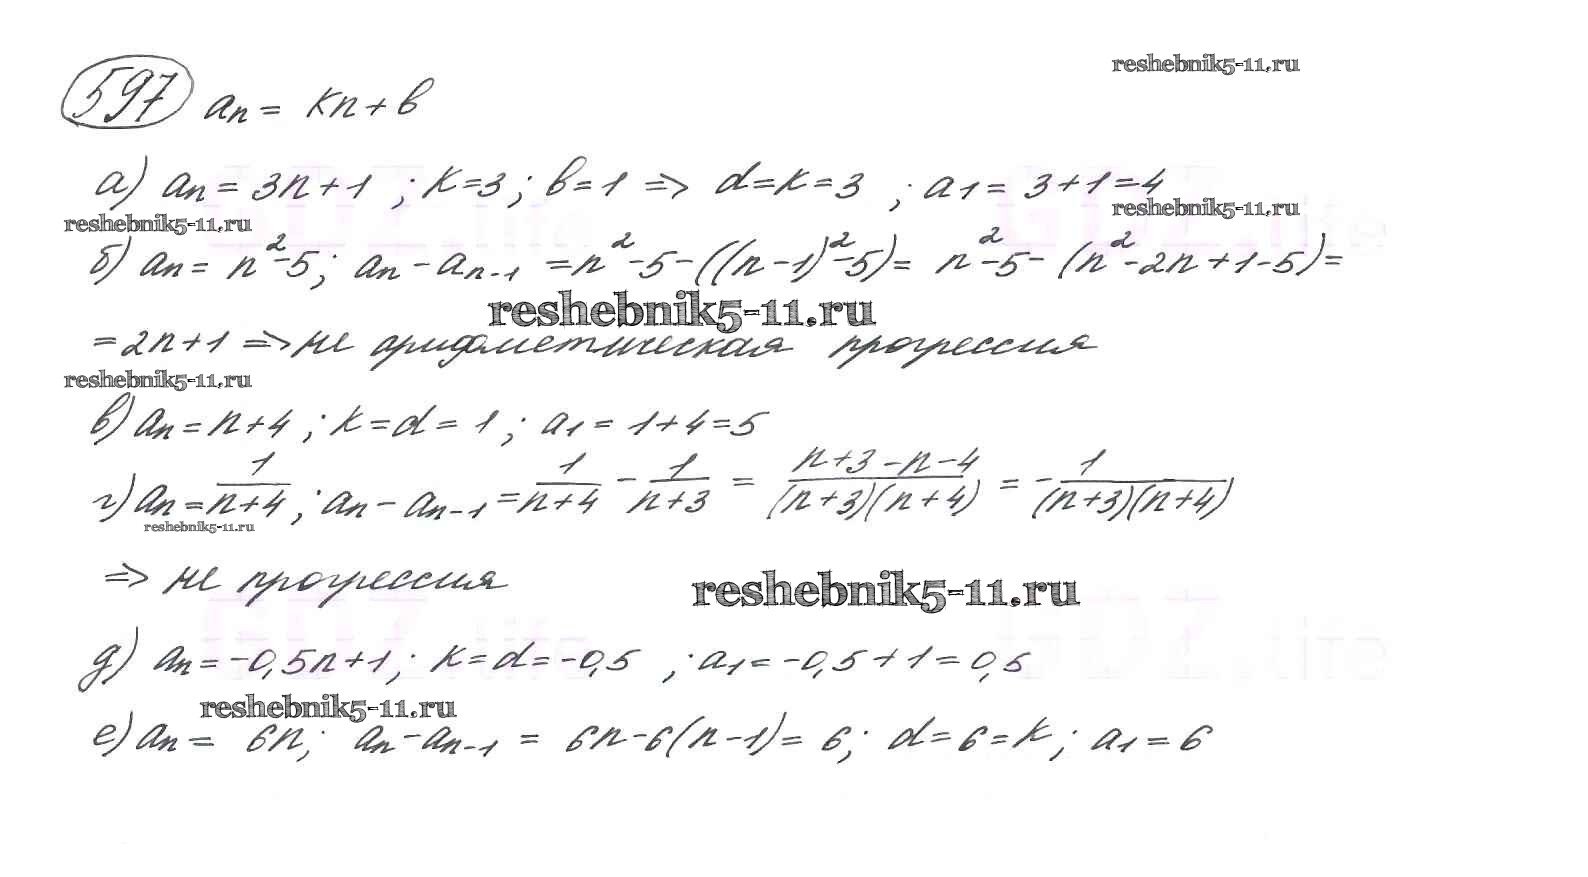 reshebnik5-11.ru
597 aₙ = kn + b
а) aₙ = 3n + 1 ; k = 3 ; b = 1 => d = k = 3 ; a₁ = 3 + 1 = 4
reshebnik5-11.ru
reshebnik5-11.ru
б) aₙ = n² - 5 ; aₙ - aₙ₋₁ = n² - 5 - ((n - 1)² - 5) = n² - 5 - (n² - 2n + 1 - 5) =
reshebnik5-11.ru
= 2n + 1 => не арифметическая прогрессия
reshebnik5-11.ru
в) aₙ = n + 4 ; k = d = 1 ; a₁ = 1 + 4 = 5
г) aₙ = 1/(n + 4) ; aₙ - aₙ₋₁ = 1/(n + 4) - 1/(n + 3) = (n + 3 - n - 4)/((n + 3)(n + 4)) = - 1/((n + 3)(n + 4))
reshebnik5-11.ru
=> не прогрессия
reshebnik5-11.ru
GDZ.life GDZ.life
д) aₙ = -0,5n + 1 ; k = d = -0,5 ; a₁ = -0,5 + 1 = 0,5
reshebnik5-11.ru
е) aₙ = 6n ; aₙ - aₙ₋₁ = 6n - 6(n - 1) = 6 ; d = 6 = k ; a₁ = 6